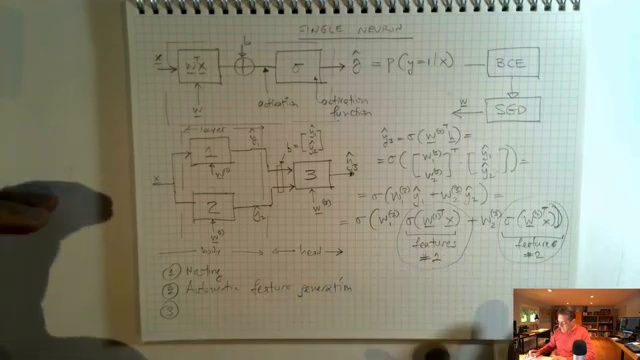 SINGLE NEURON
x
w^T x
b
σ
ŷ = p(y=1|x)
BCE
w
activation
activation function
w
SGD
layer
ŷ₁
h = [ŷ₁ ŷ₂]
1
w^(1)
x
2
w^(2)
ŷ₂
3
w^(3)
ŷ₃
body
head
ŷ₃ = σ(w^(3)T h) =
= σ([w₁^(3) w₂^(3)]^T [ŷ₁ ŷ₂]) =
= σ(w₁^(3) ŷ₁ + w₂^(3) ŷ₂) =
= σ(w₁^(3) σ(w^(1)T x) + w₂^(3) σ(w^(2)T x))
features #2
features #2
① Nesting
② Automatic feature generation
③